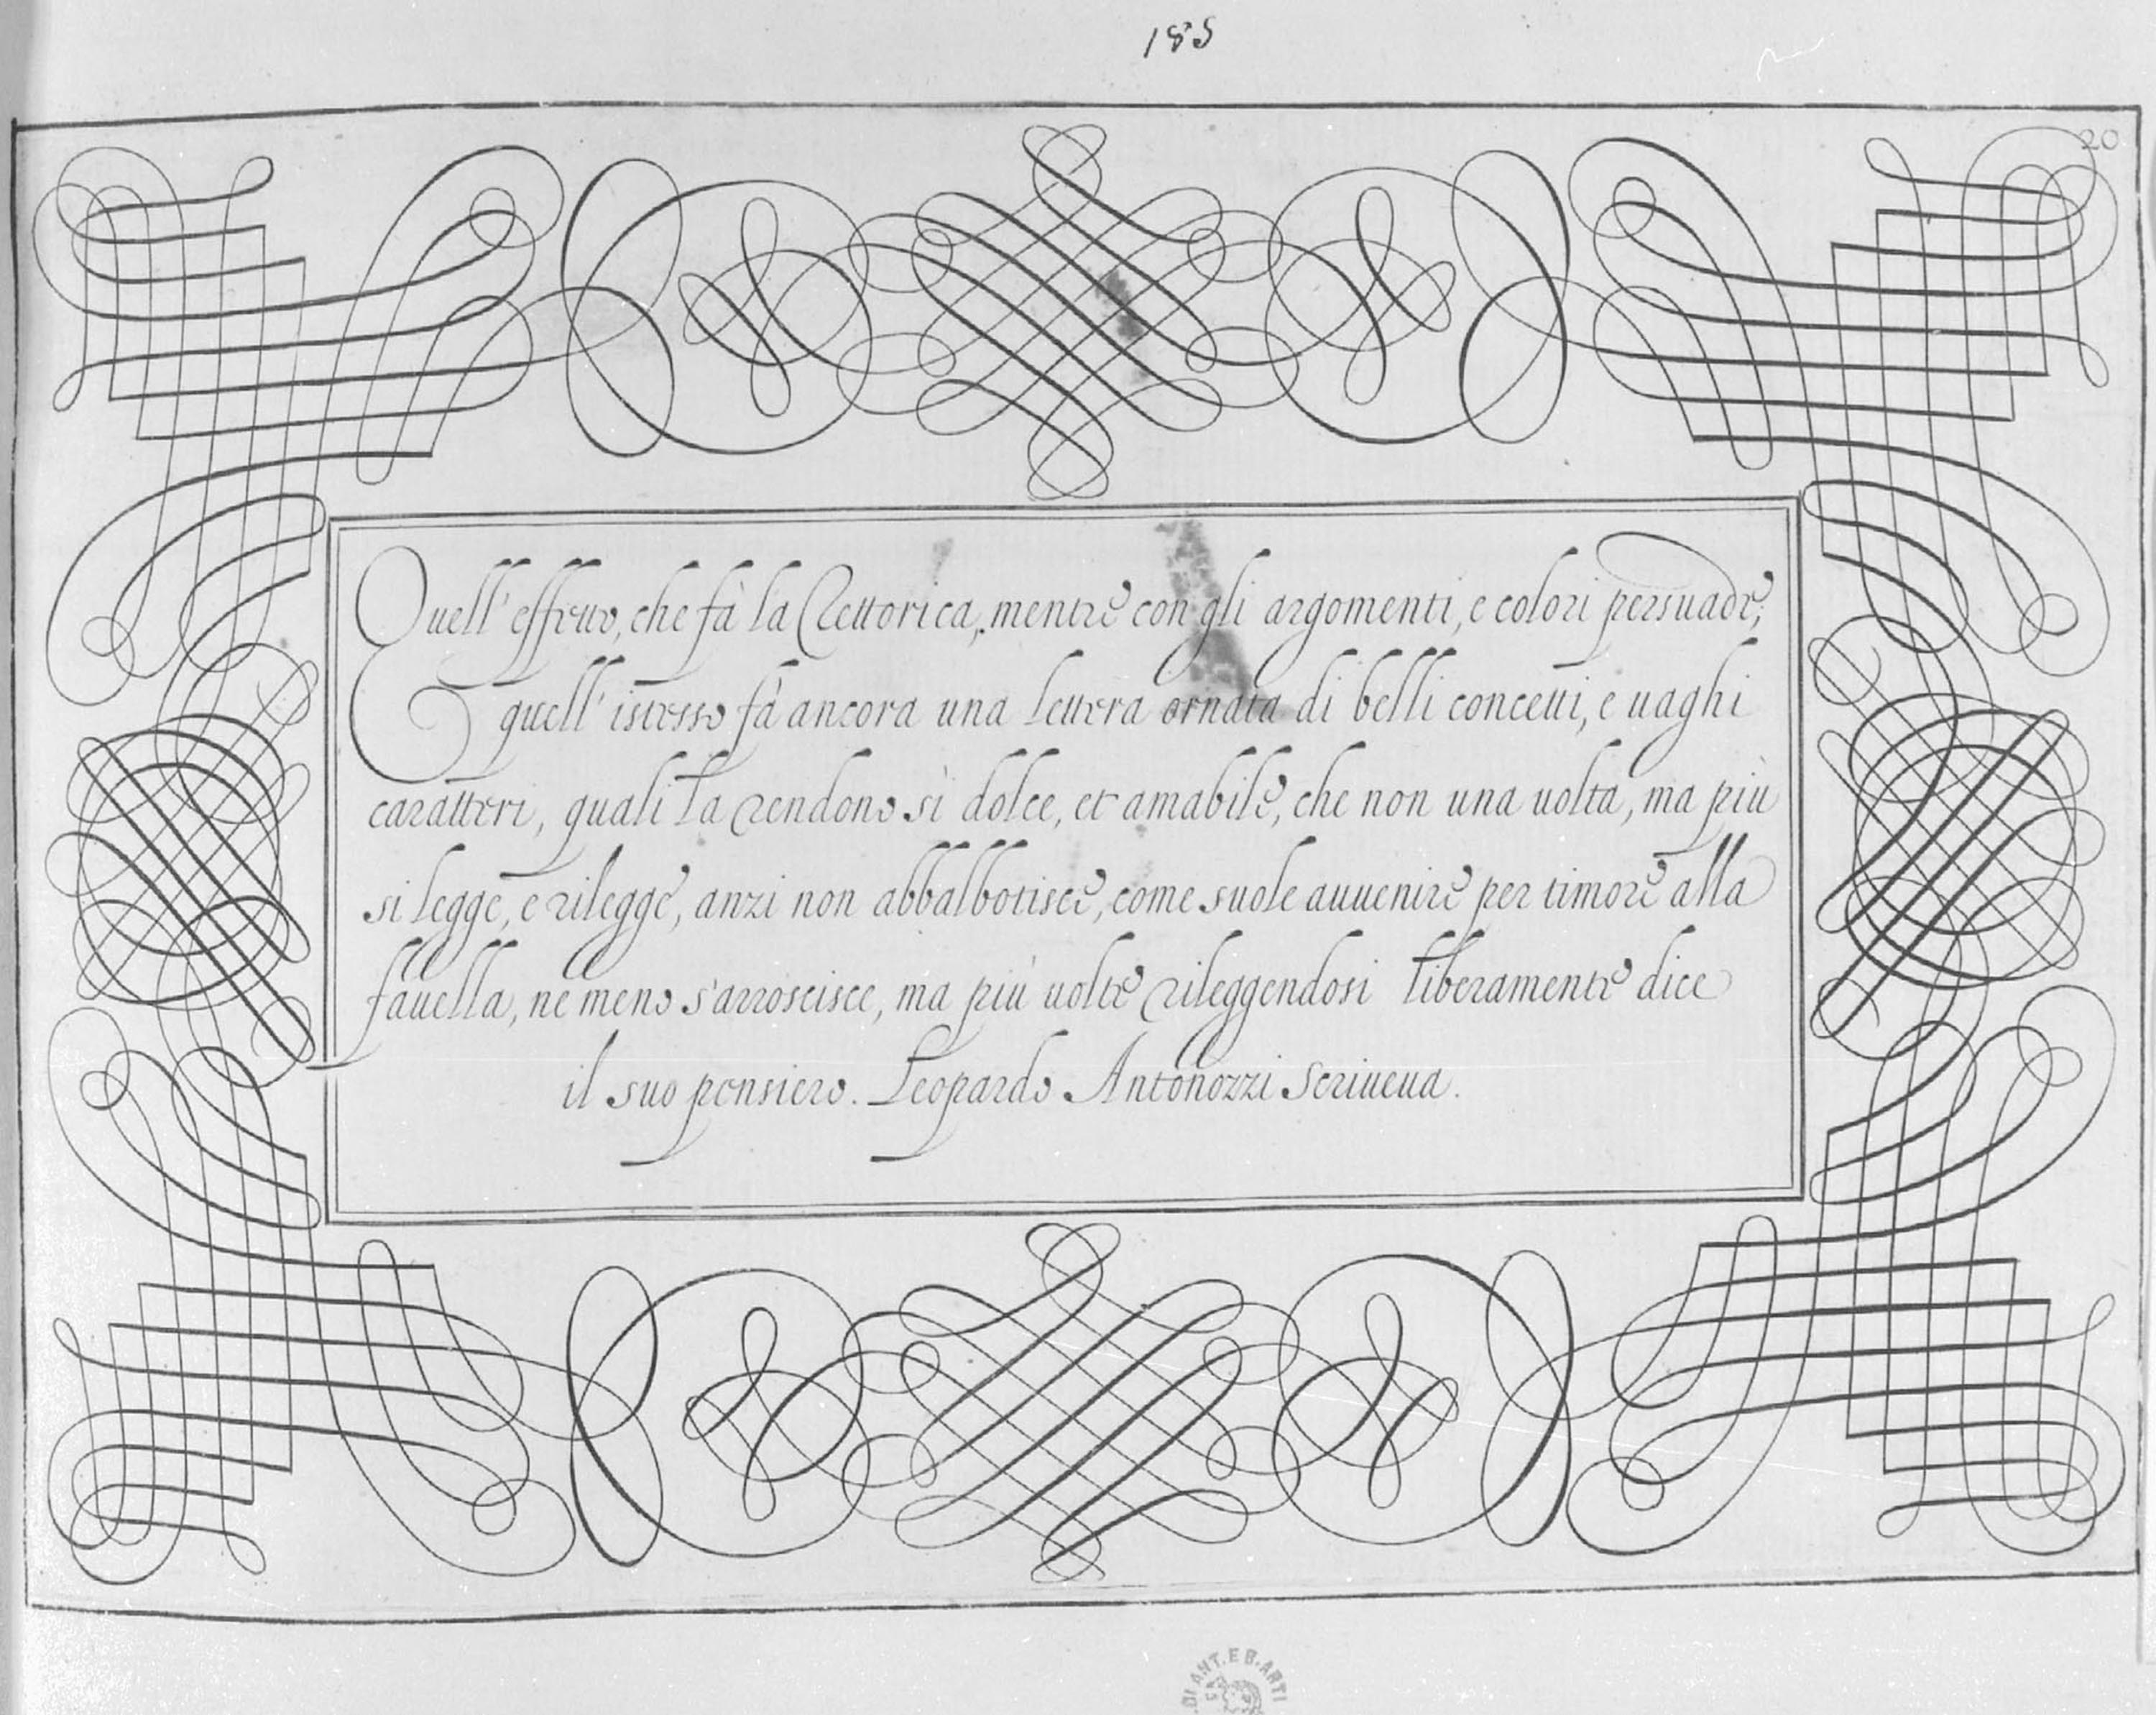 185
20
Quell'effetto, che fà la Rettorica, mentre con gli argomenti, e colori persuade;
E quell'istesso fà ancora una lettera ornata di belli concetti, e uaghi
caratteri, quali la rendono sì dolce, et amabile, che non una uolta, ma più
si legge, e rilegge, anzi non abbalbotisce, come suole auuenire per timore alla
fauella, ne meno s'arroscisce, ma più uolte rileggendosi liberamente dice
il suo pensiero. Leopardo Antonozzi Scriueua.
DI ANT. E B. ARTI